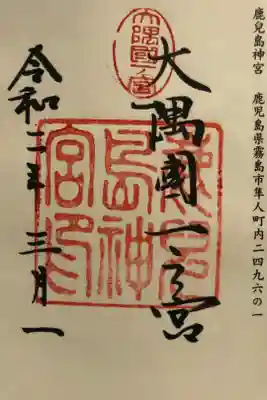 鹿兒島神宮 鹿児島県霧島市隼人町内二四九六の一
大隅國一ノ宮
大隅國一之宮
鹿兒島神宮印
令和二年三月一